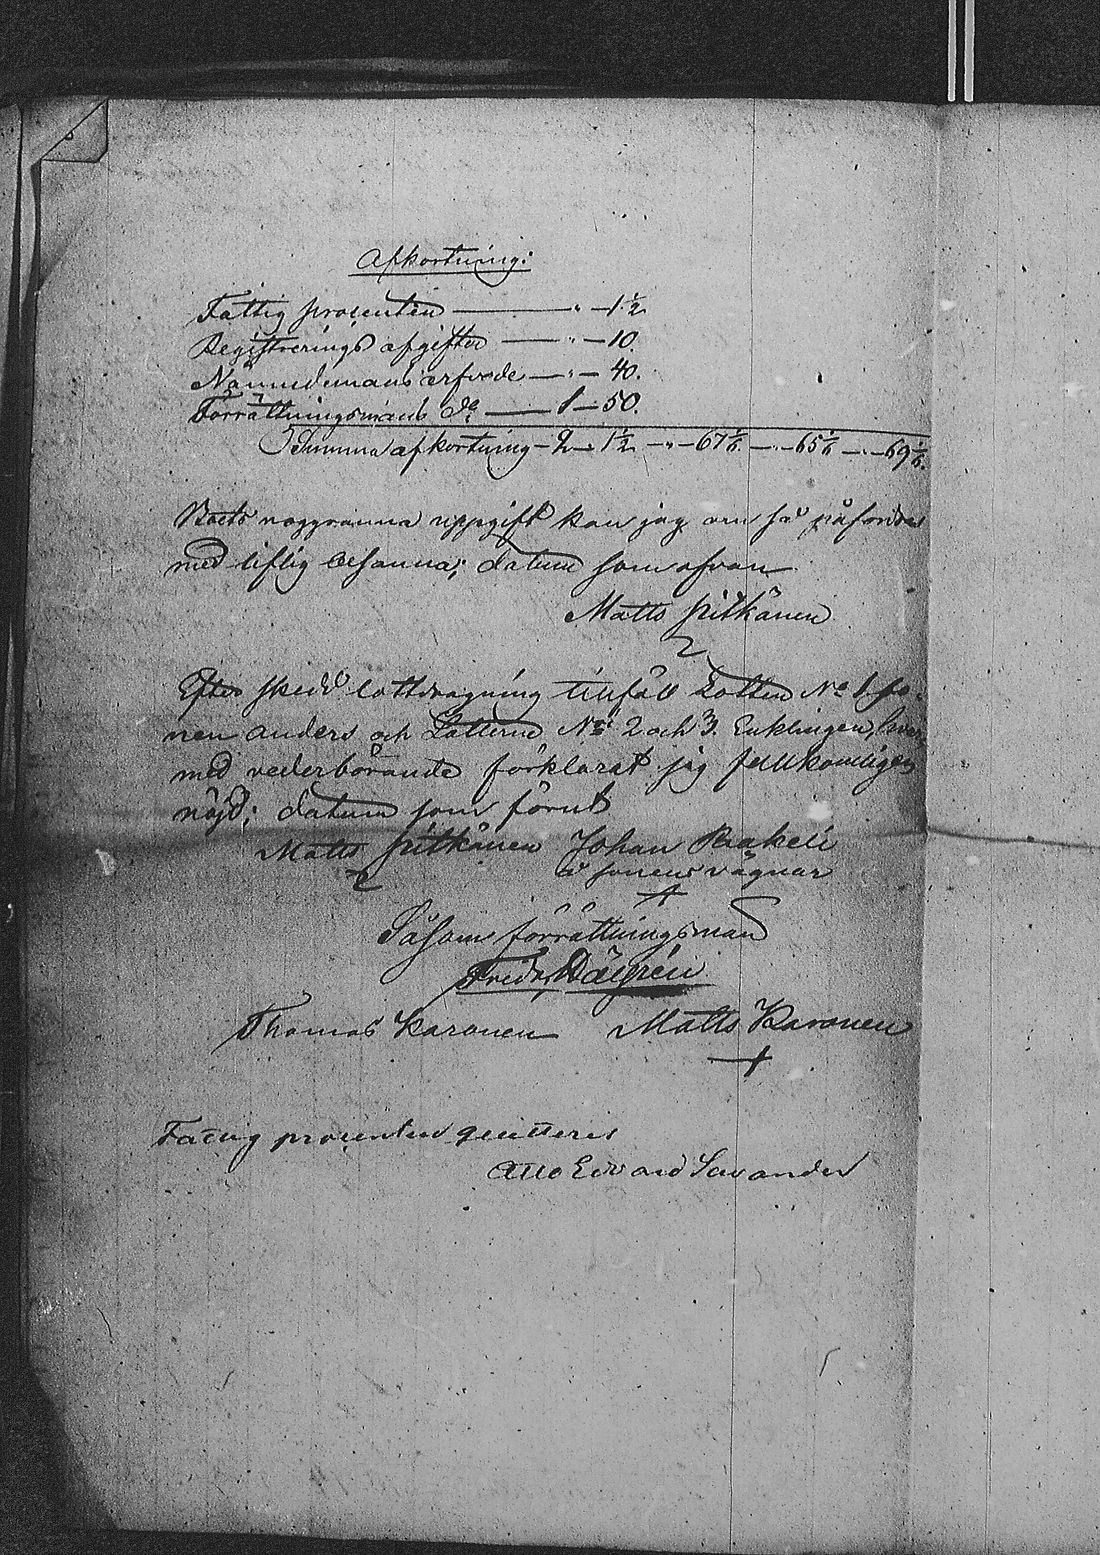 Afkortning:
Fattig procenten — " — 1 1/2
Registrerings afgifter — " — 10.
Nämndemans arfvode — " — 40.
Förrättningsmans do — 1 — 50.
Summa afkortning — 2 — 1 1/2 — " — 67 1/6 — " — 65 1/6 — " — 69 1/6.
Boets noggranna uppgift kan jag om så påfordras
med liflig ed sanna; datum som ofvan
Matts Pitkänen
Efter skedd lottdragning tillföll Lotten No 1 so-
nen Anders och Lotterne No 2 och 3. Enklingen, hvar
med vederbörande förklarat sig fullkomligen
nöjd; datum som förut
Matts Pitkänen Johan Rakeli
å sonens vägnar
Såsom förrättningsman
Fredr. Dägrén
Thomas Karonen Matts Karonen
Fattig procenten quitteras
Otto Edvard Savander